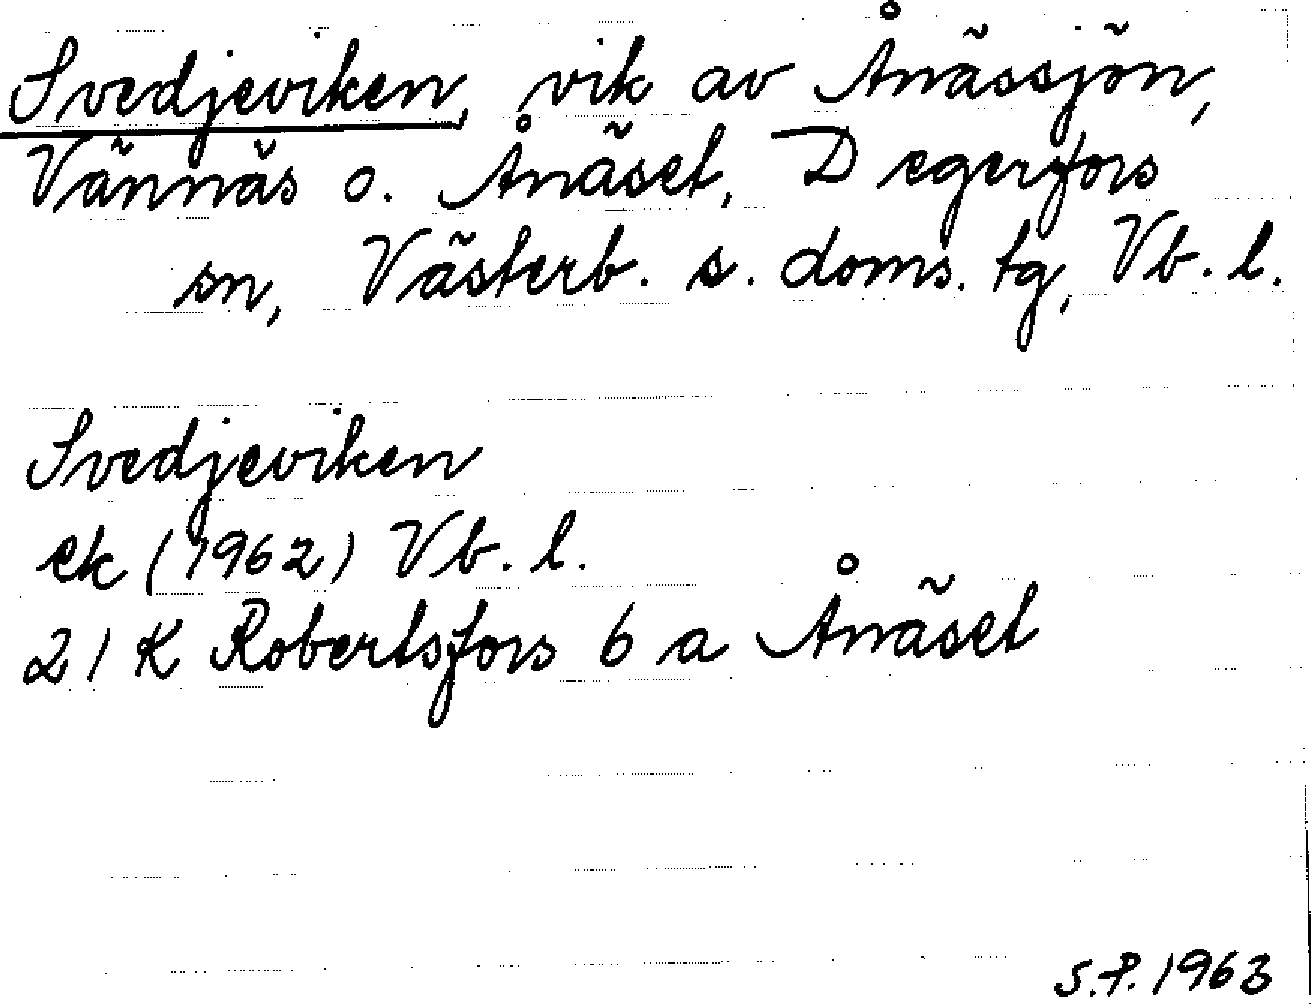 Svedjeviken, vik av Ånässjön,
Vännäs o. Ånäset, Degerfors
sn, Västerb. s. doms. tg, Vb. l.
Svedjeviken
ek (1962) Vb. l.
21 K Robertsfors 6 a Ånäset
S.P. 1963